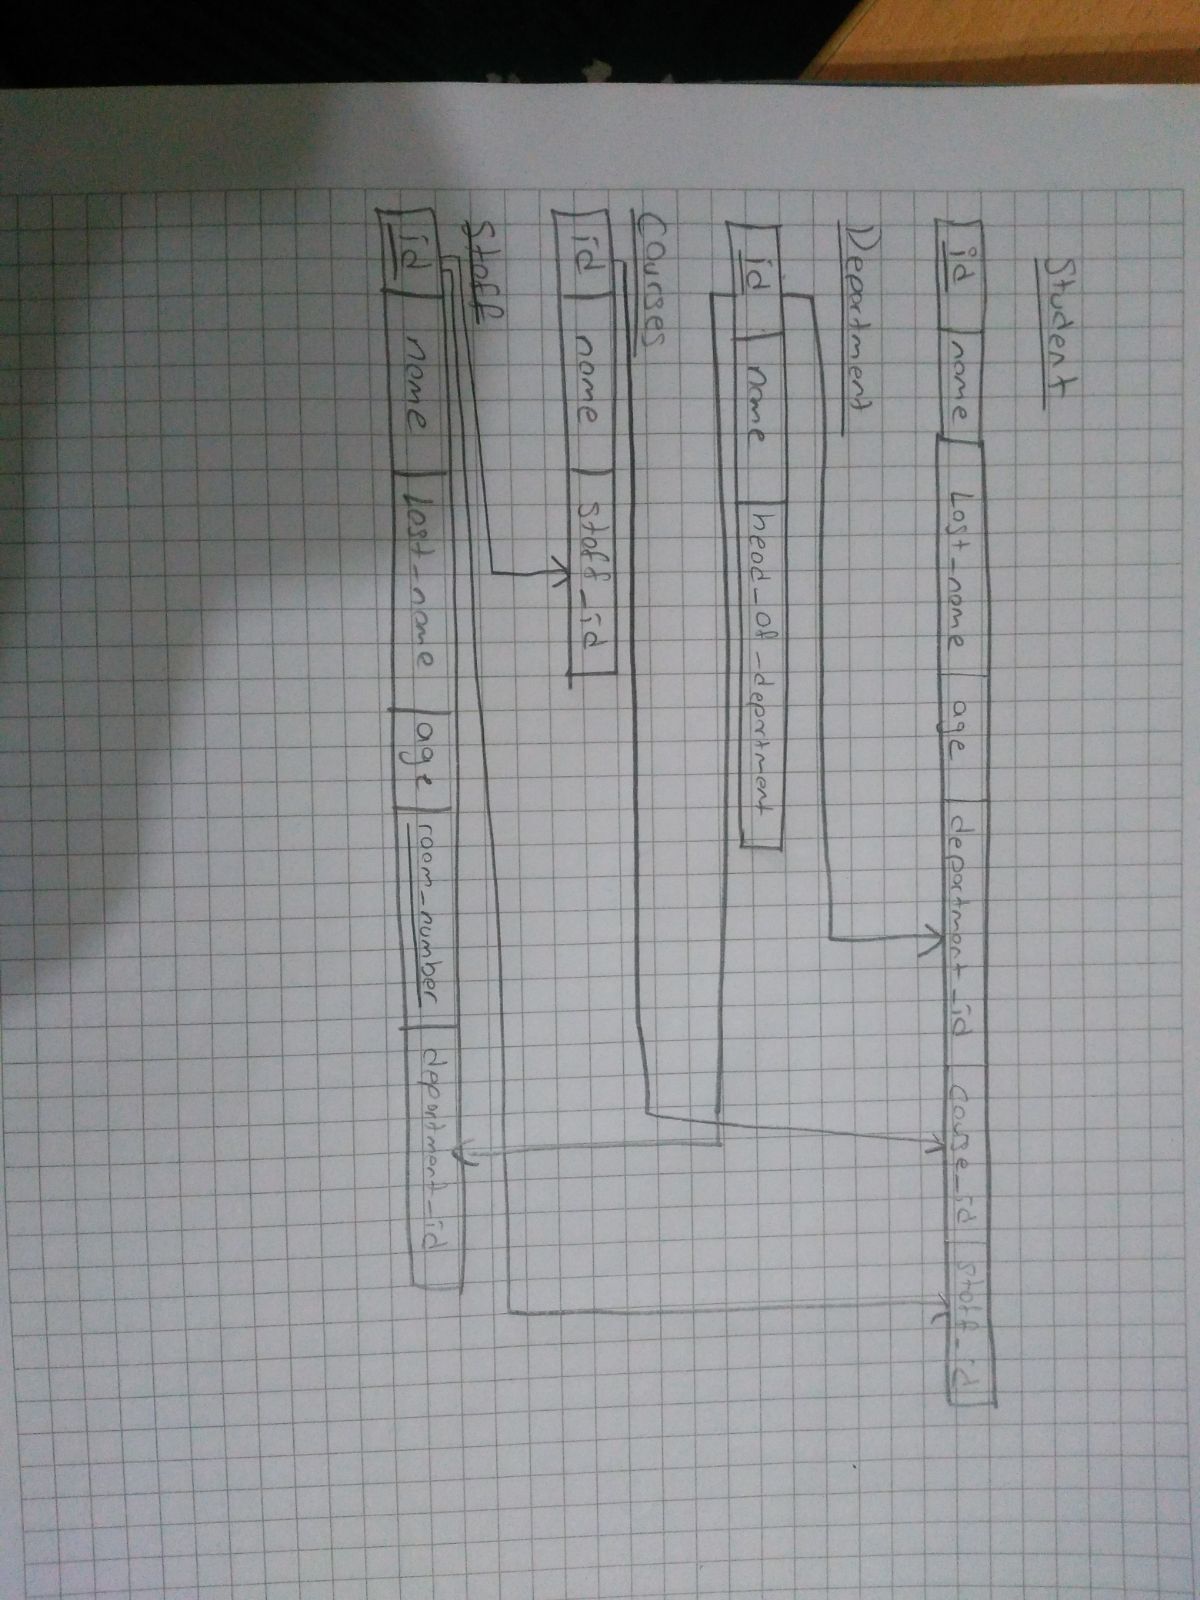 Student
id name Last_name age department_id course_id staff_id
Department
id name head_of_department
Courses
id name staff_id
Staff
id name Last_name age room_number department_id